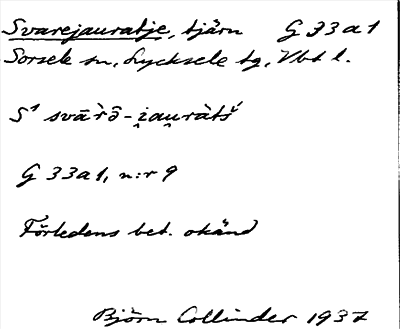 Svarejauratje, tjärn G 33 a 1
Sorsele sn, Lycksele tg, Vbt l.
S¹ svārò̄-i̯au̯ràtš́
G 33 a 1, n:r 9
Förledens bet. okänd
Björn Collinder 1937